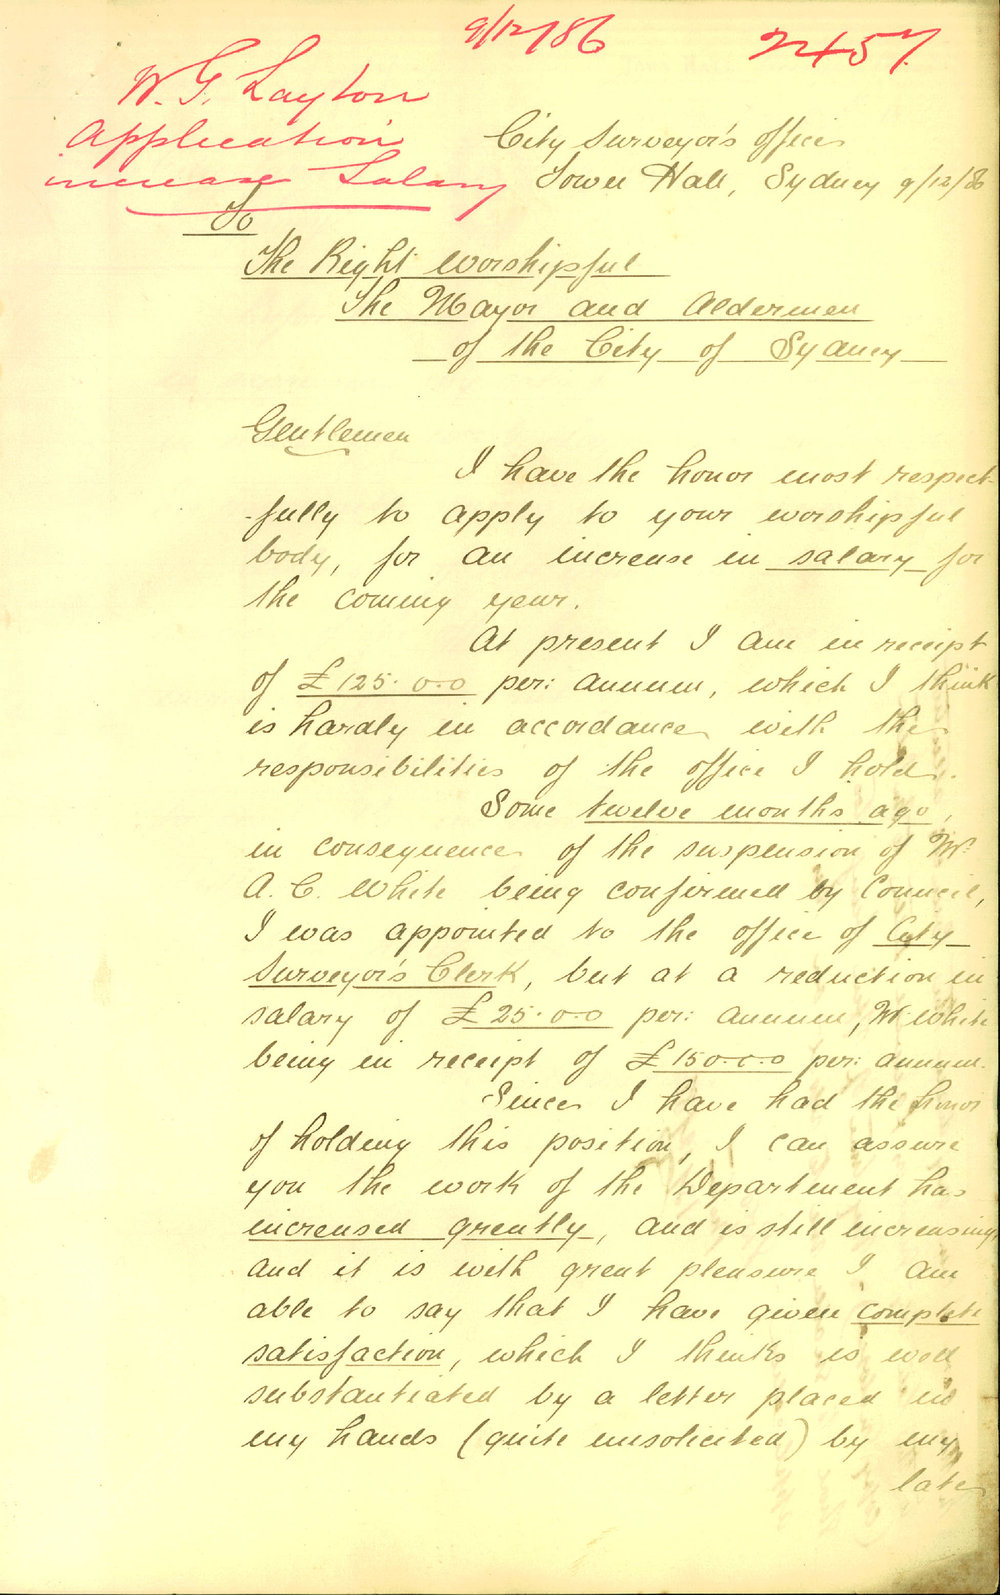 9/12/86
2457
W. G. Layton
Application
increase Salary
City Surveyor's Office
Town Hall, Sydney 9/12/86
To
The Right Worshipful
The Mayor and Aldermen
of the City of Sydney
Gentlemen
I have the honor most respect-
-fully to apply to your worshipful
body, for an increase in salary for
the coming year.
At present I am in receipt
of £125.0.0 per: annum, which I think
is hardly in accordance with the
responsibilities of the office I hold.
Some twelve months ago,
in consequence of the suspension of Mr
A. C. White being confirmed by Council,
I was appointed to the office of City
Surveyor's Clerk, but at a reduction in
salary of £25.0.0 per: annum, Mr White
being in receipt of £150.0.0 per: annum.
Since I have had the honor
of holding this position, I can assure
you the work of the Department has
increased greatly, and is still increasing
and it is with great pleasure I am
able to say that I have given complete
satisfaction, which I thinks is well
substantiated by a letter placed in
my hands (quite unsolicited) by my
late